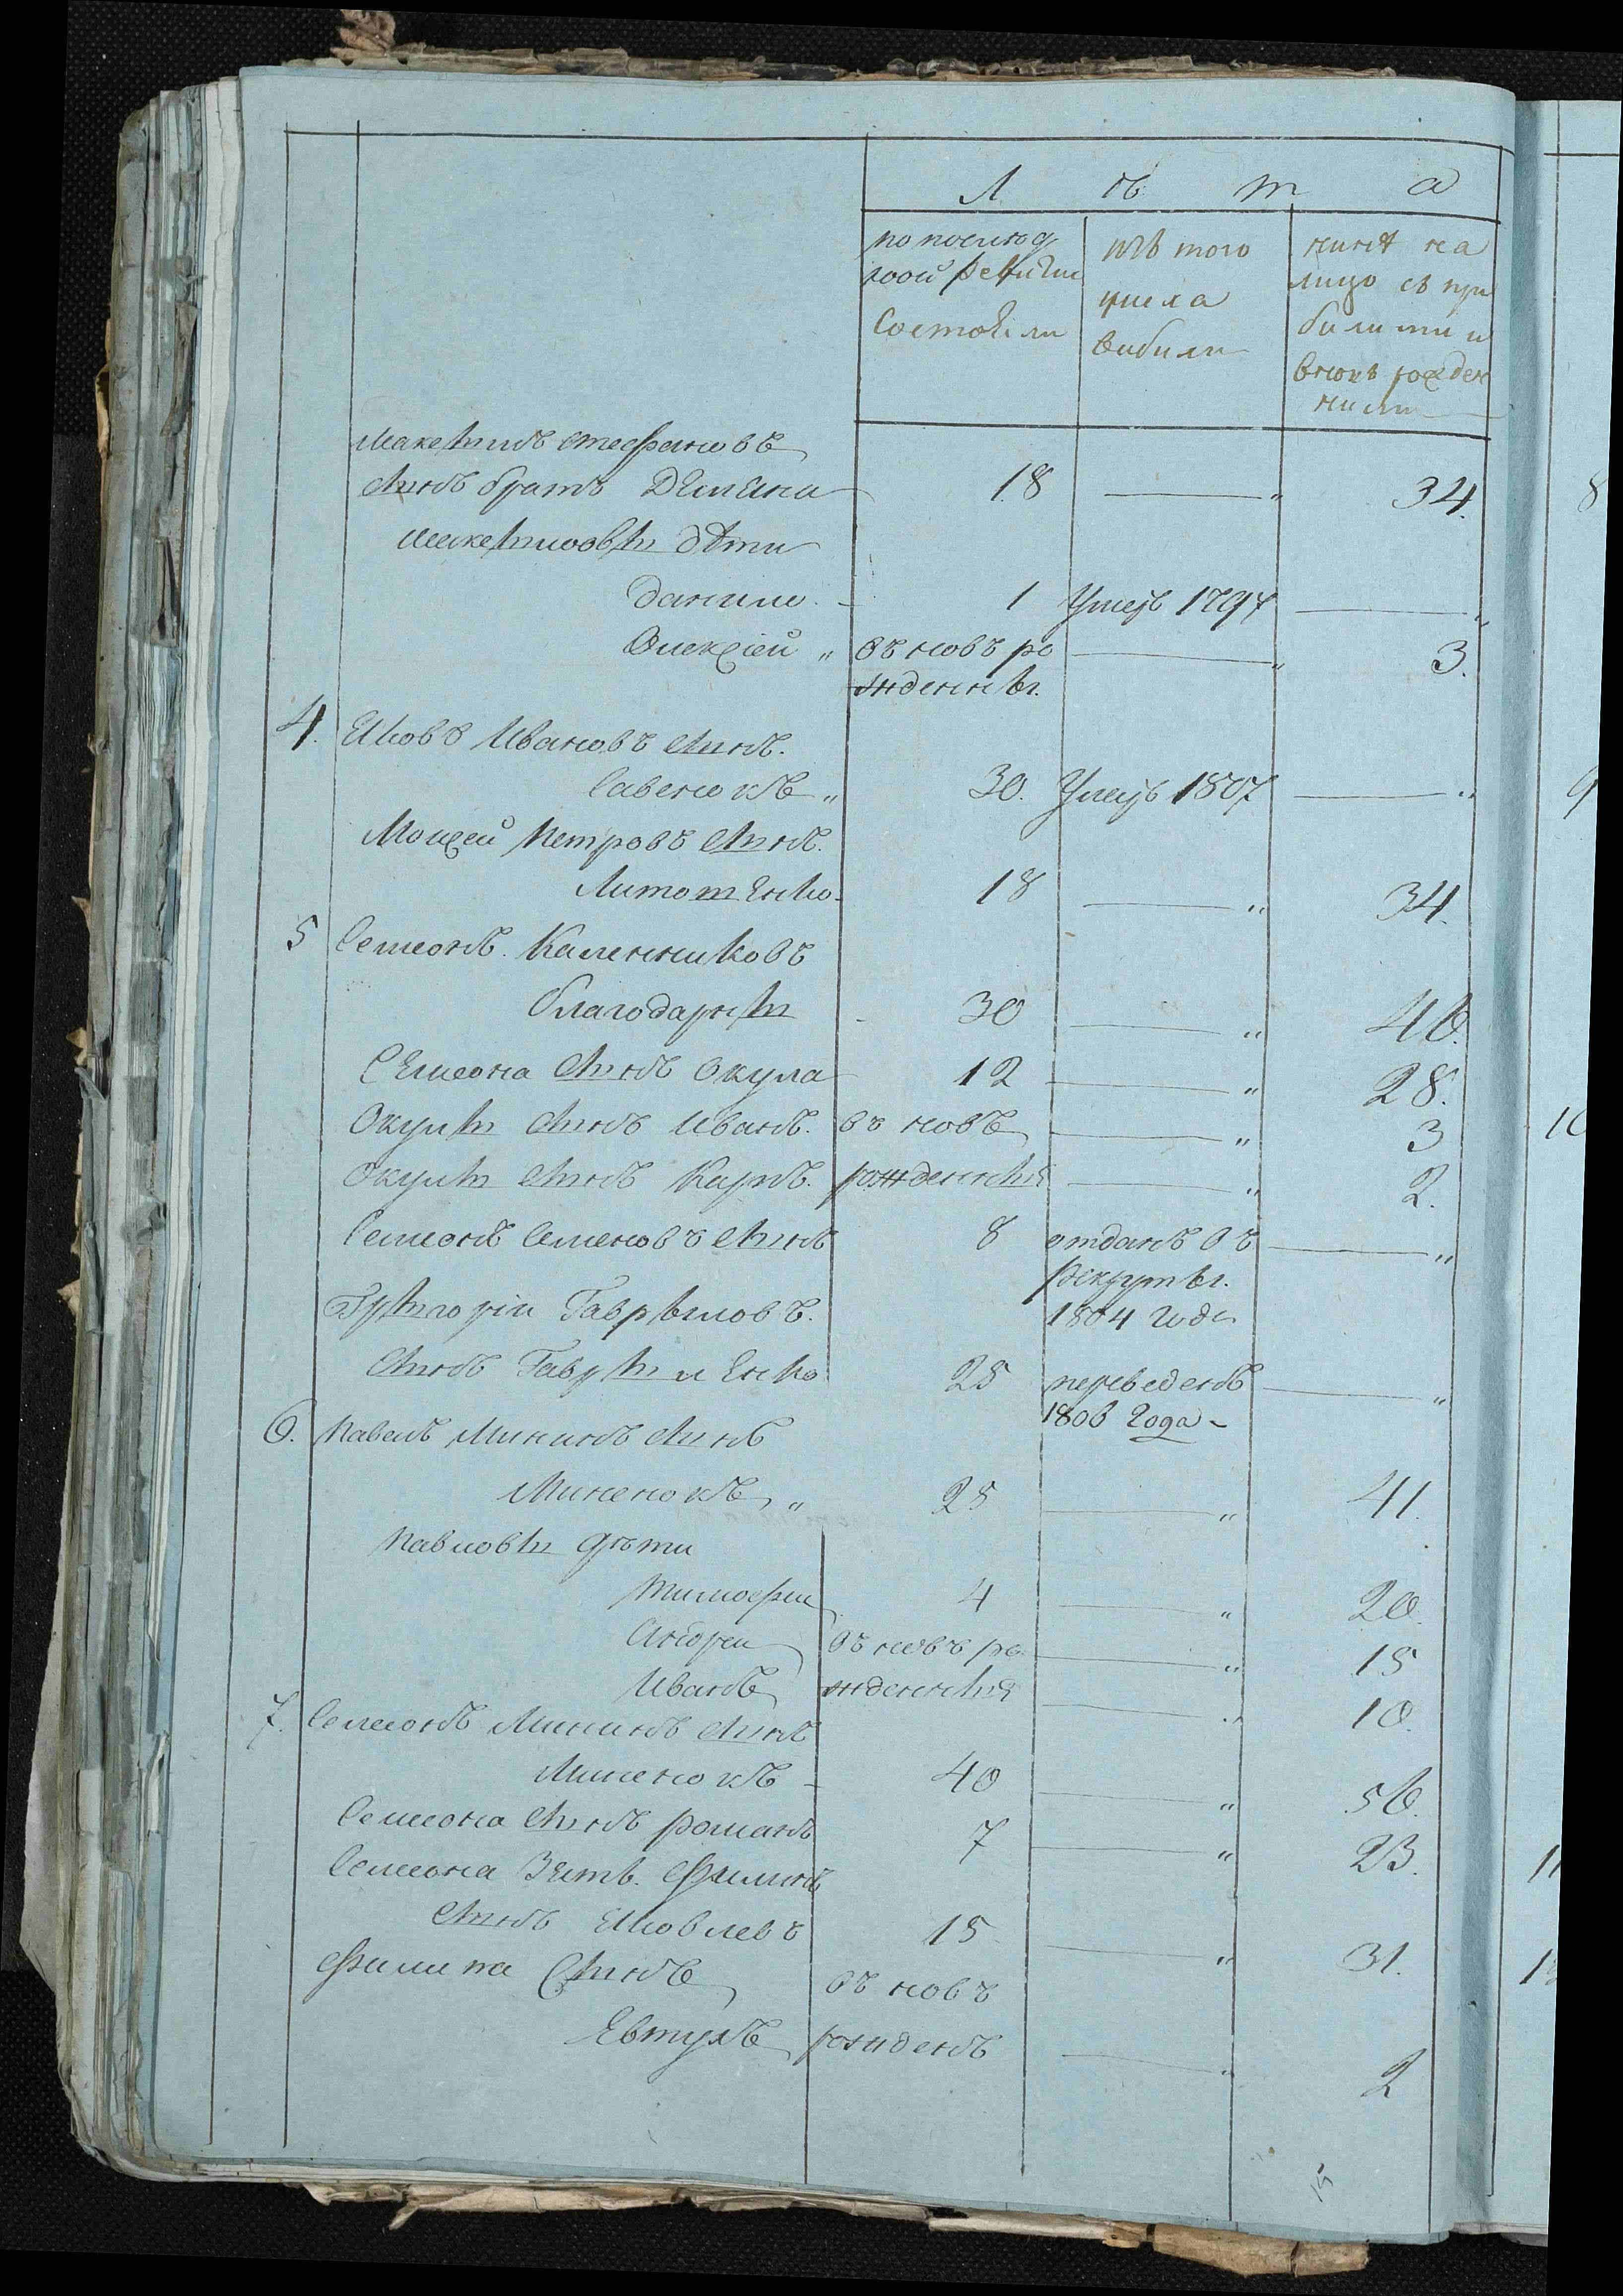 Л ѣ т а
по послѣд
ней ревизии
состояли
изъ того
числа
выбыли
нынѣ на
лицо съ при
былыми и
вновь рожден
ными
Максимъ Стефановъ
сынъ братъ Демяна 18 — „ 34.
Максимовы дѣти
Данило 1 Умеръ 1797 — „
Олексѣй „ въ новъ ро — „ 3.
жденны.
4. Яковъ Ивановъ сынъ.
Савенокъ „ 30. Умеръ 1807 — „
Мойсей Петровъ сынъ.
Литотенко 18 — „ 34.
5 Семонъ. Каленниковъ
благодарны 30 — „ 46.
Семона сынъ Окула 12 — „ 28.
Окулы сынъ Иванъ. въ новъ — „ 3
Окулы сынъ Карпъ. рожденныя — „ 2.
Семонъ Семеновъ сынъ 8 отданъ въ — „
рекруты.
Григорій Гавриловъ. 1804 года
сынъ Гавриленко 25 переведенъ — „
1806 года
6. Павелъ Мининъ сынъ
Миненокъ „ 25 — „ 41.
Павловы дѣти
Тимофеи 4 — „ 20.
Андреи въ новъ ро — „ 15
Иванъ жденныя — „ 10.
7. Семонъ Мининъ сынъ
Миненокъ 40 — „ 56.
Семона сынъ романъ 7 — „ 23.
Семона Зять. Филипъ
сынъ Яковлевъ 15 — „ 31.
Филипа Сынъ въ новъ
Евтухъ рожденъ — „ 2
15